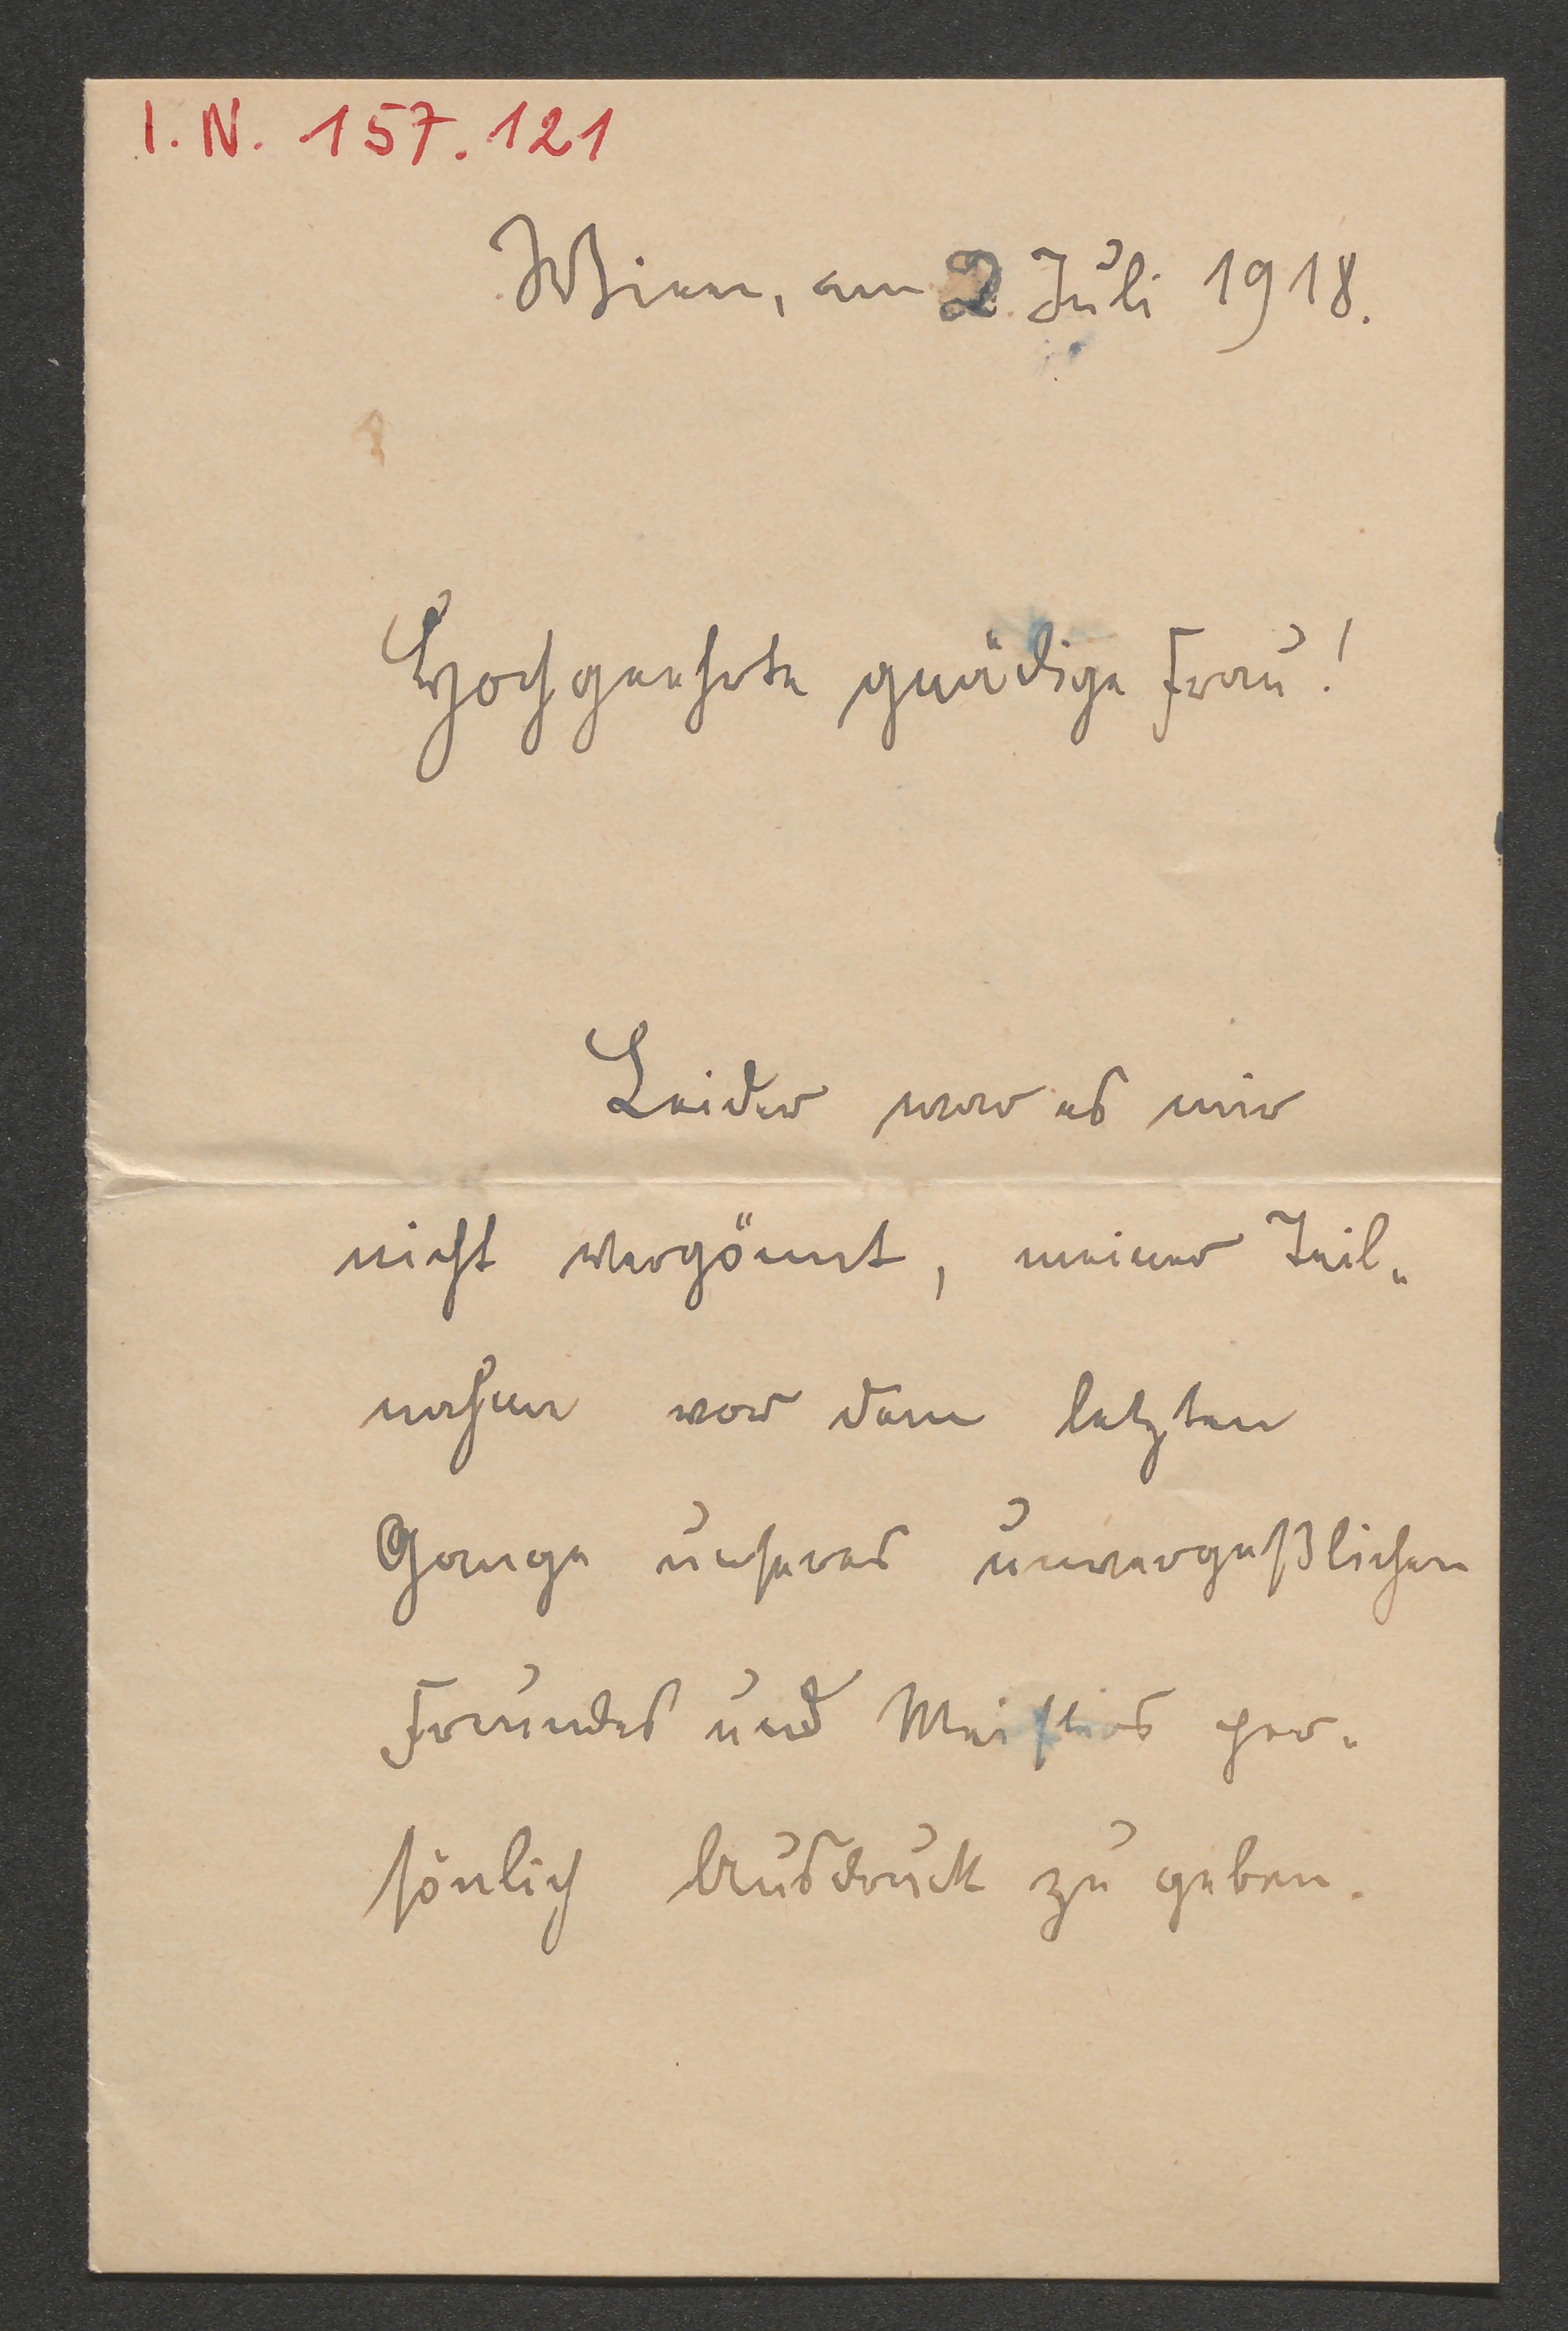 I. N. 157.121
Wien, am 2. Juli 1918.
Hochgeehrte gnädige Frau!
Leider war es mir
nicht vergönnt, meiner Teil-
nahme vor dem letzten
Gange unseres unvergeßlichen
Freundes und Meisters per-
sönlich Ausdruck zu geben.